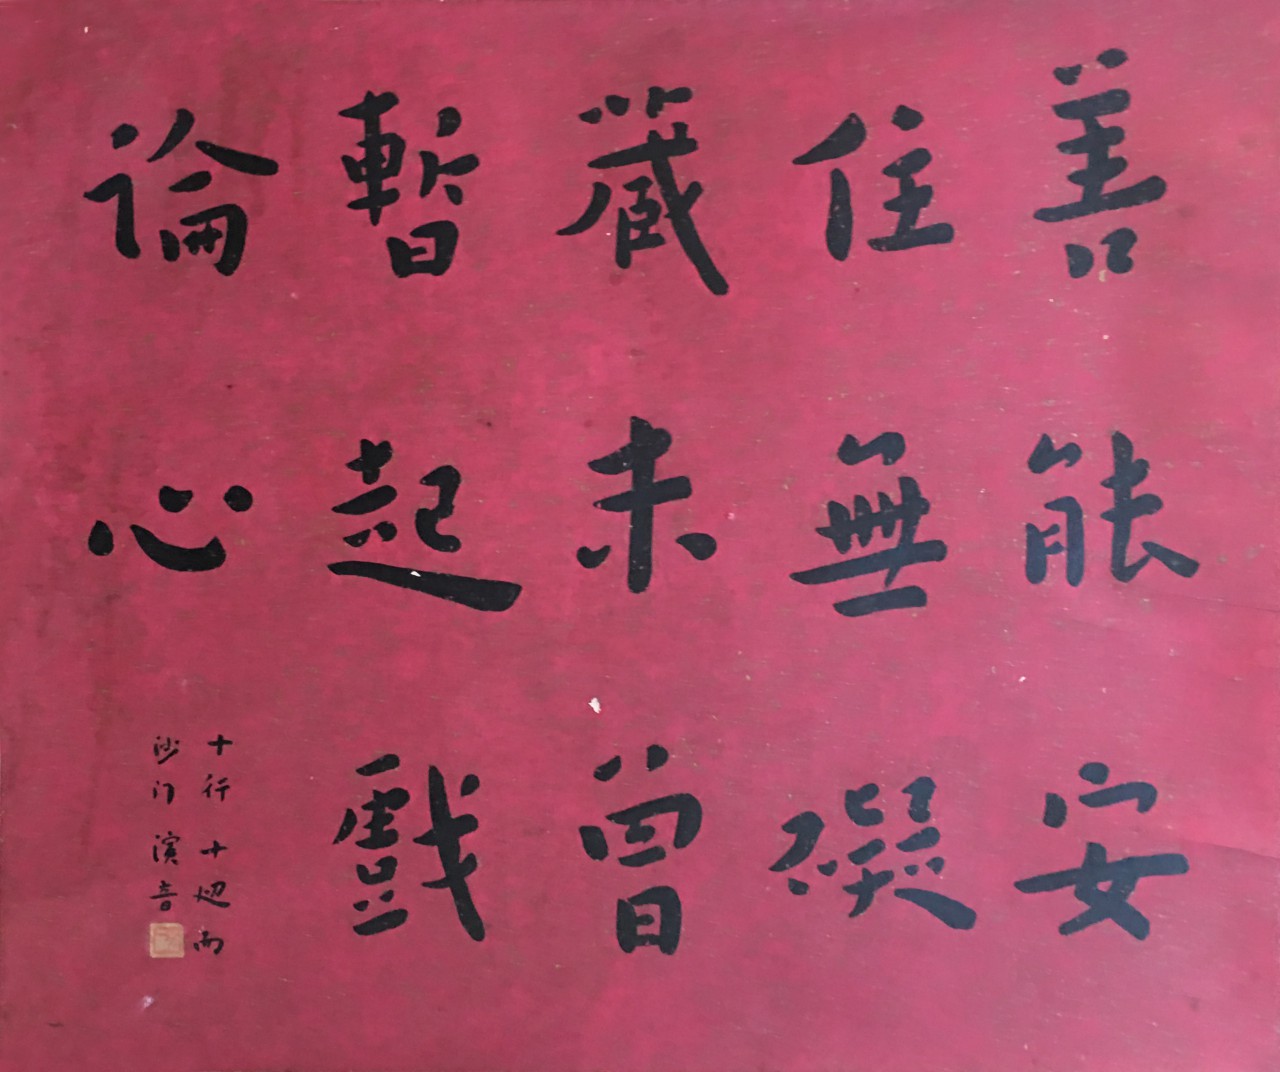 善能安
住無礙
藏未曾
暫起戲
論心
十行 十迴向
沙门 演音